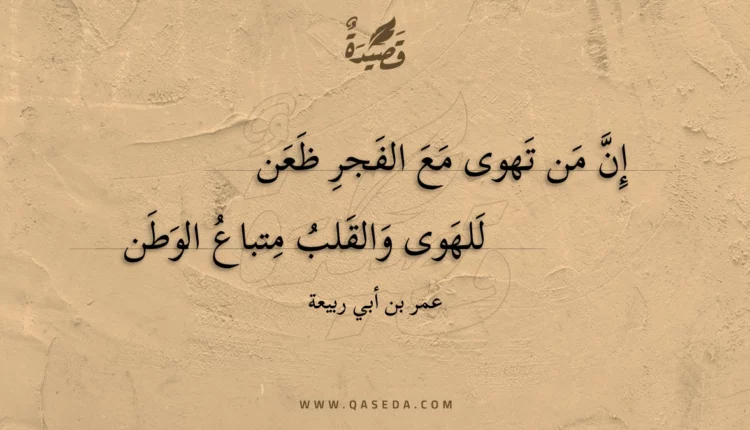 قَصِيدَةٌ
إِنَّ مَن تَهوى مَعَ الفَجرِ ظَعَن
لَلهَوى وَالقَلبُ مِتباعُ الوَطَن
عمر بن أبي ربيعة
WWW.QASEDA.COM